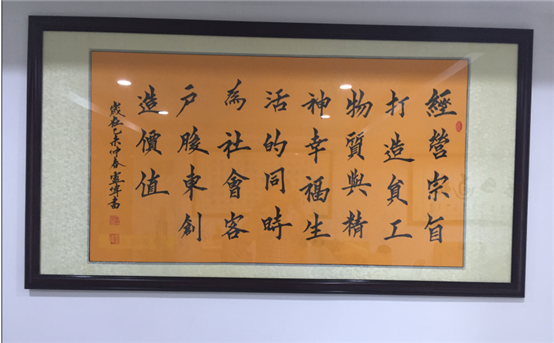 經營宗旨
打造員工
物質與精
神幸福生
活的同時
為社會客
戶股東創
造價值
歲在乙未仲春書